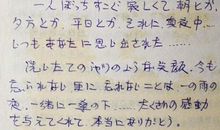 一人ぼっちすごく寂しくて 朝とか、
夕方とか、平日とか、それに、真夜中…
いつもあなたに思い出された………
洗いたてのシャツのような笑顔、今も
忘れられない 更に、忘れないことは一つの雨の
夜、一緒に一傘の下…… たくさんの感動
を与えてくれて、本当にありがとう。